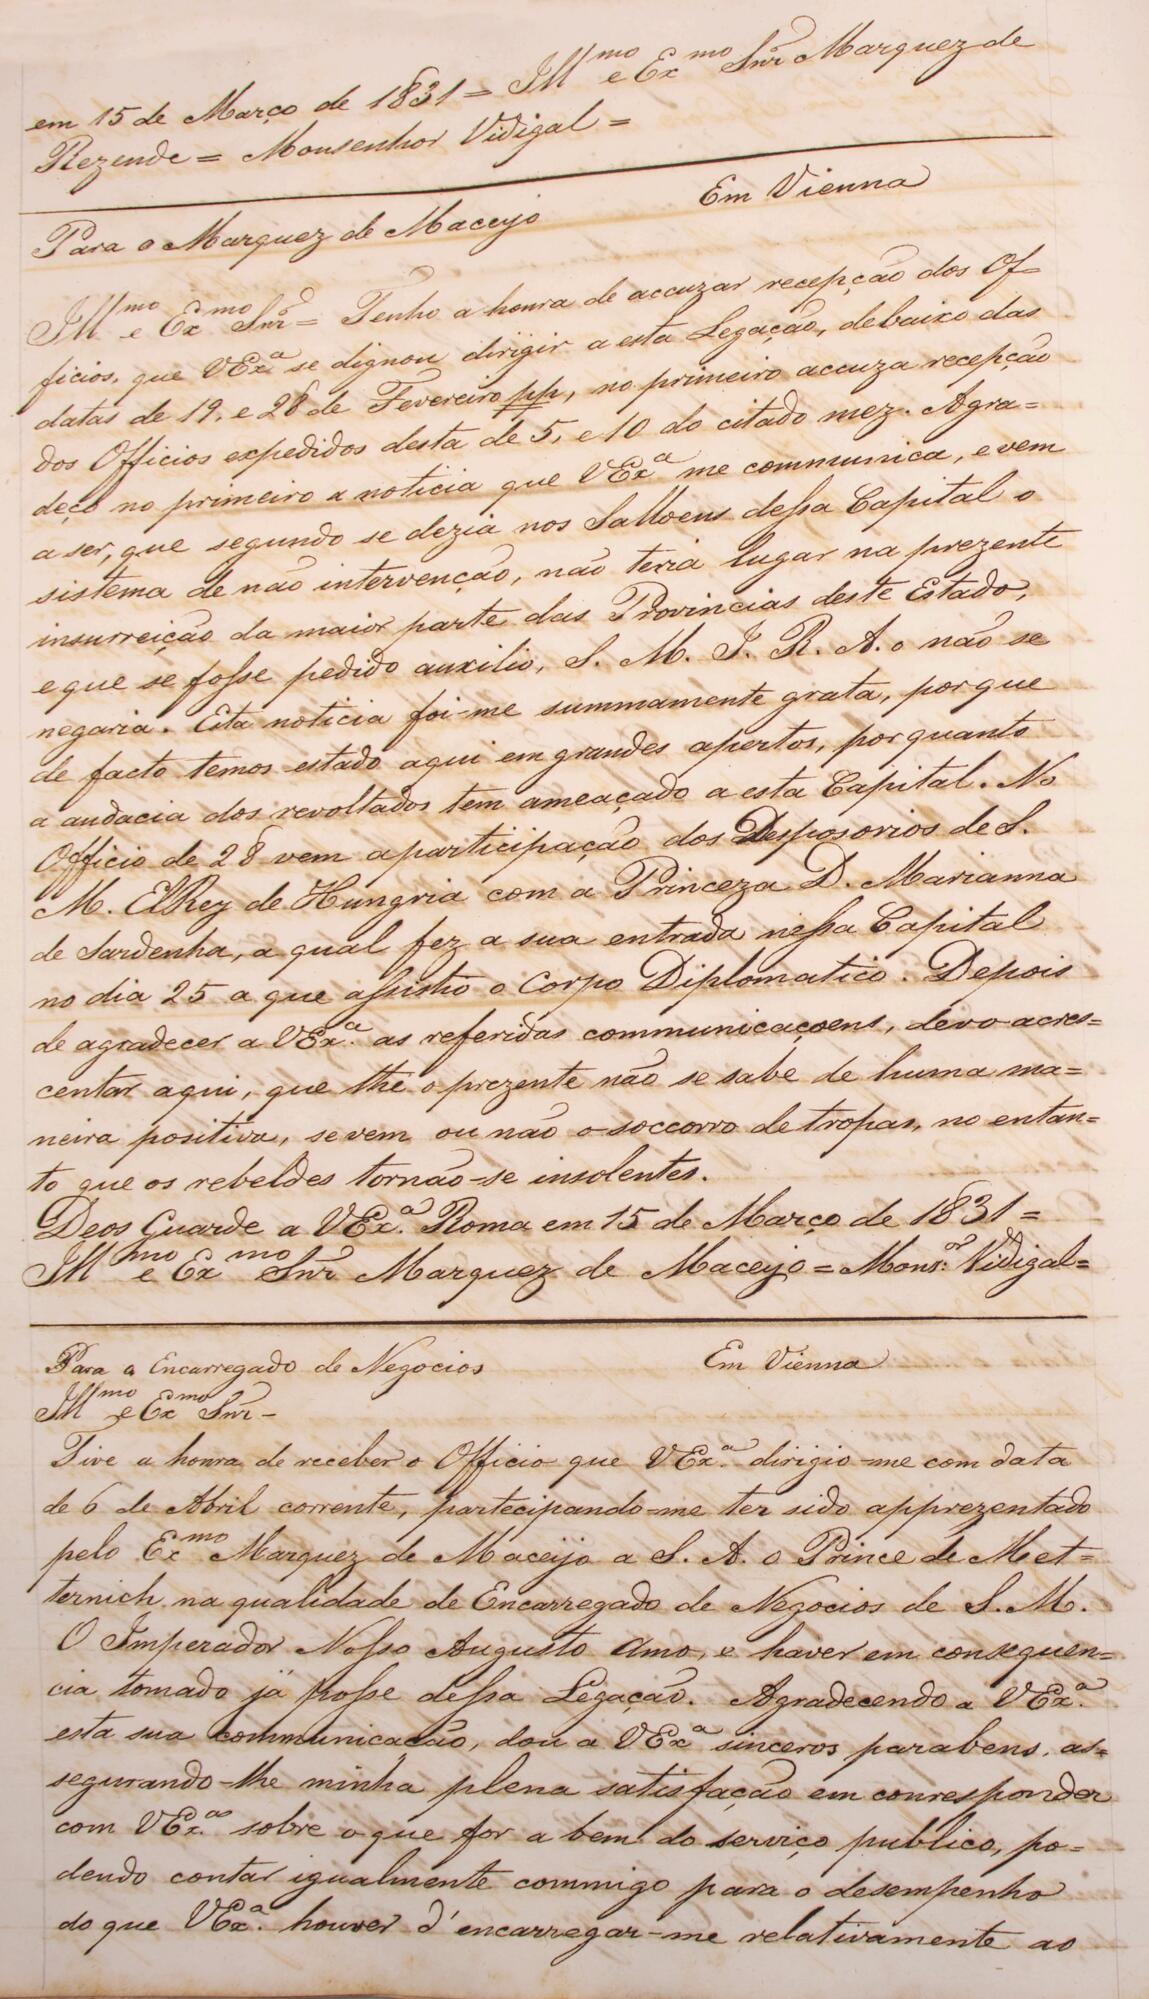 em 15 de Março de 1831 = Ill^mo e Ex^mo Snr Marquez de
Rezende = Monsenhor Vidigal =
Para o Marquez de Maceyo Em Vienna
Ill^mo e Ex^mo Snr = Tenho a honra de accuzar recepção dos Of=
ficios, que VEx^a se dignou dirigir a esta Legação, debaixo das
datas de 19, e 28 de Fevereiro pp, no primeiro accuza recepção
dos Officios expedidos desta de 5, e 10 do citado mez. Agra=
deço no primeiro a noticia que VEx^a me communica, e vem
a ser, que segundo se dezia nos Salloens dessa Capital o
sistema de não intervenção, não teria lugar na prezente
insurreição da maior parte das Provincias deste Estado,
e que se fosse pedido auxilio, S. M. J. R. A. o não se
negaria. Esta noticia foi-me summamente grata, porque
de facto temos estado aqui em grandes apertos, porquanto
a audacia dos revoltados tem ameaçado a esta Capital. No
Officio de 28 vem a participação dos Desposorios de S.
M. ElRey de Hungria com a Princeza D. Marianna
de Sardenha, a qual fez a sua entrada nessa Capital
no dia 25 a que assistio o Corpo Diplomatico. Depois
de agradecer a VEx^a. as referidas communicaçoens, devo acres=
centar aqui, que thé o prezente não se sabe de huma ma=
neira positiva, se vem ou não o soccorro de tropas, no entan=
to que os rebeldes tornão-se insolentes.
Deos Guarde a VEx^a. Roma em 15 de Março de 1831 =
Ill^mo e Ex^mo Snr Marquez de Maceyo = Mons^or. Vidigal =
Para o Encarregado de Negocios Em Vienna
Ill^mo e Ex^mo Snr -
Tive a honra de receber o Officio que VEx^a. dirigio-me com data
de 6 de Abril corrente, partecipando-me ter sido apprezentado
pelo Ex^mo Marquez de Maceijo a S. A. o Prince de Met=
ternich na qualidade de Encarregado de Negocios de S. M.
O Imperador Nosso Augusto Amo, e haver em consequen=
cia tomado já posse dessa Legação. Agradecendo a VEx^a.
esta sua communicacão, dou a VEx^a sinceros parabens, as=
segurando-lhe minha plena satisfação em corresponder
com VEx^as. sobre o que for a bem do serviço publico, po=
dendo contar igualmente commigo para o desempenho
do que VEx^a. houver d'encarregar-me relativamente ao